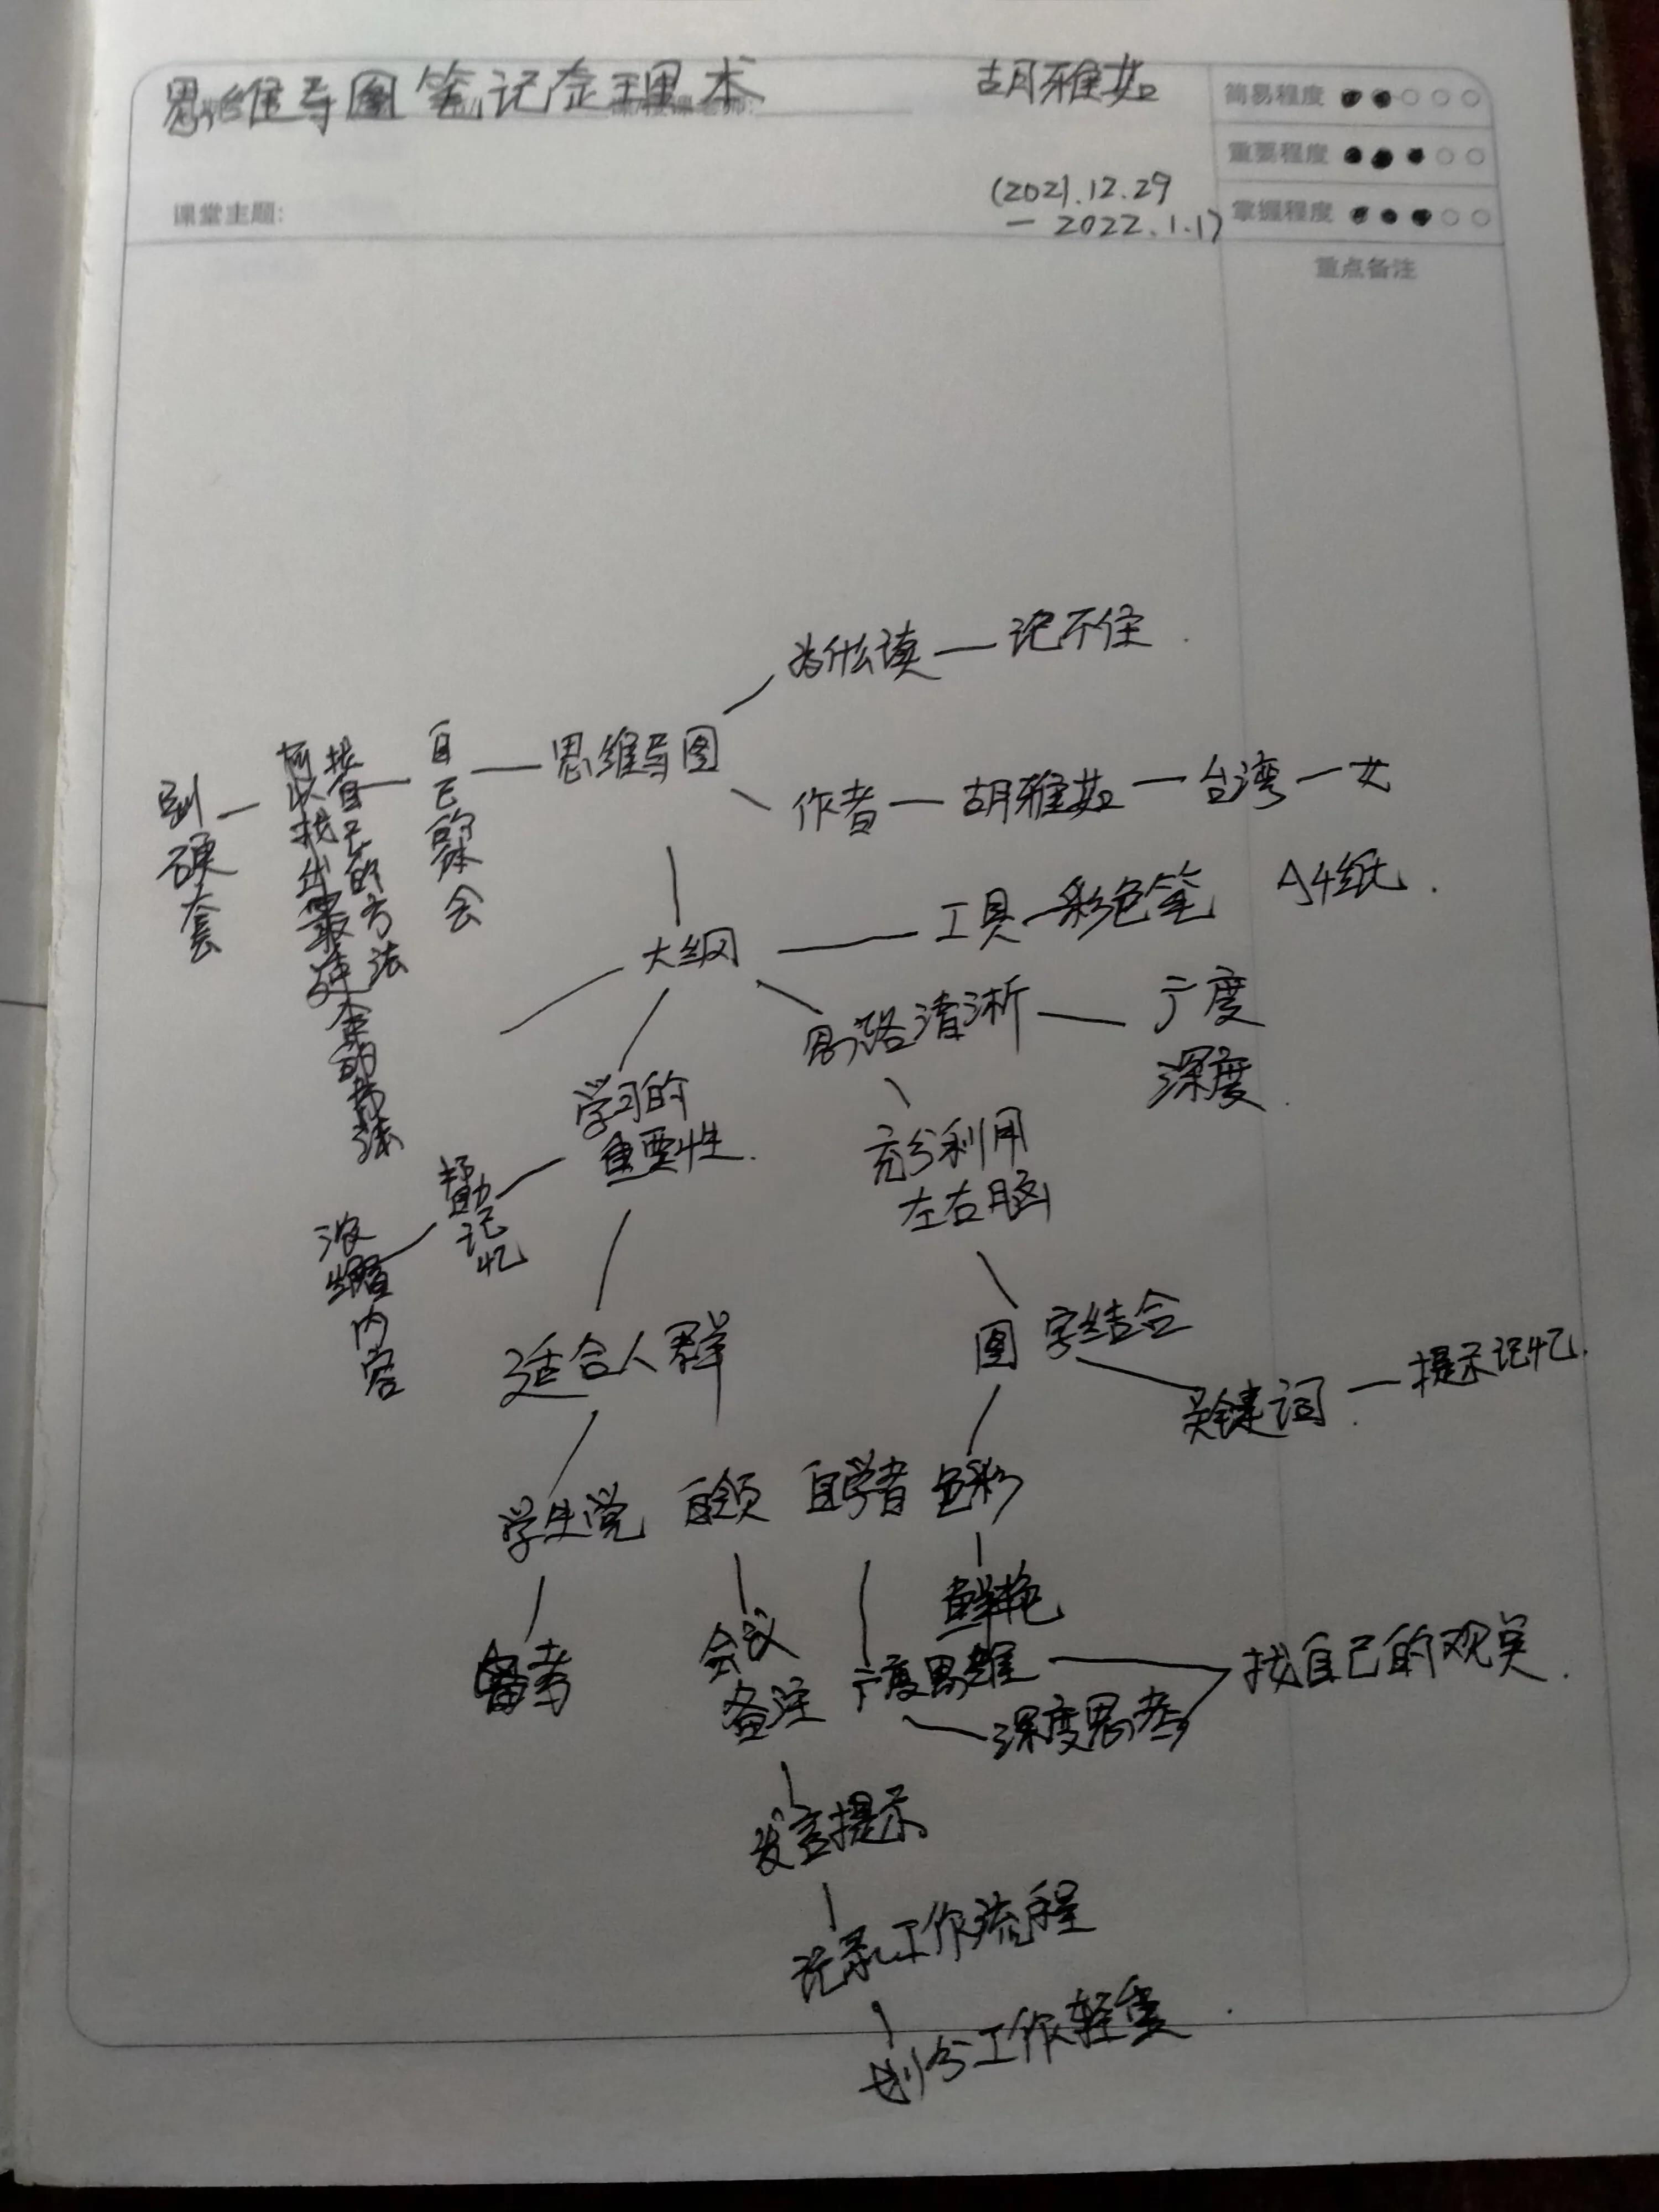 思维导图笔记整理术
胡雅茹
简易程度
重要程度
课堂主题:
(2021.12.29
— 2022.1.17)
掌握程度
重点备注
为什么读 — 记不住
思维导图
自己的体会
找自己的方法
可以找出最适合的方法
别硬套
作者 — 胡雅茹 — 台湾 — 女
大纲
工具 — 彩色笔 A4纸
思路清淅 — 广度
深度
学习的
重要性
帮助记忆
浓缩内容
充分利用
左右脑
适合人群
图字结合
关键词 — 提示记忆
学生党 白领 自学者 色彩
鲜艳
备考
会议
备注
广度思维
深度思考
找自己的观点
发言提示
记录工作流程
划分工作轻重